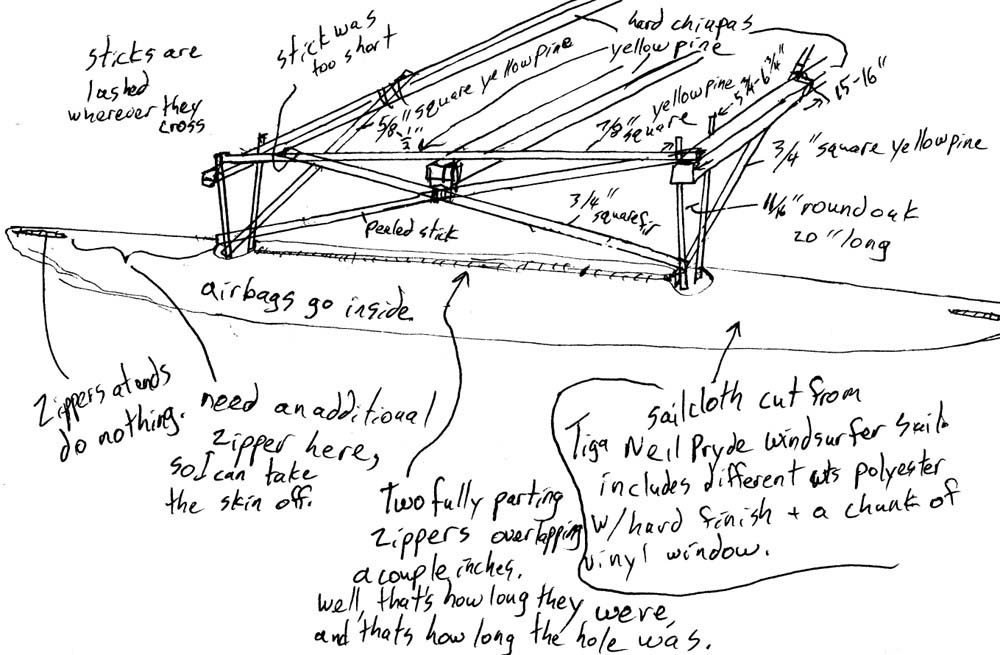 sticks are
lashed
wherever they
cross
stick was
too short
5/8"-1/2" square yellow pine
hard chiapas
yellow pine
7/8" yellow pine
square
5 3/4-6 3/4"
15-16"
3/4" square yellow pine
11/16" round oak
20" long
3/4"
square fir
peeled stick
airbags go inside.
Zippers at ends
do nothing.
need an additional
zipper here,
so I can take
the skin off.
Two fully parting
zippers overlapping
a couple inches.
well, that's how long they were,
and thats how long the hole was.
sailcloth cut from
Tiga Neil Pryde windsurfer sail.
includes different wts polyester
w/hard finish + a chunk of
vinyl window.